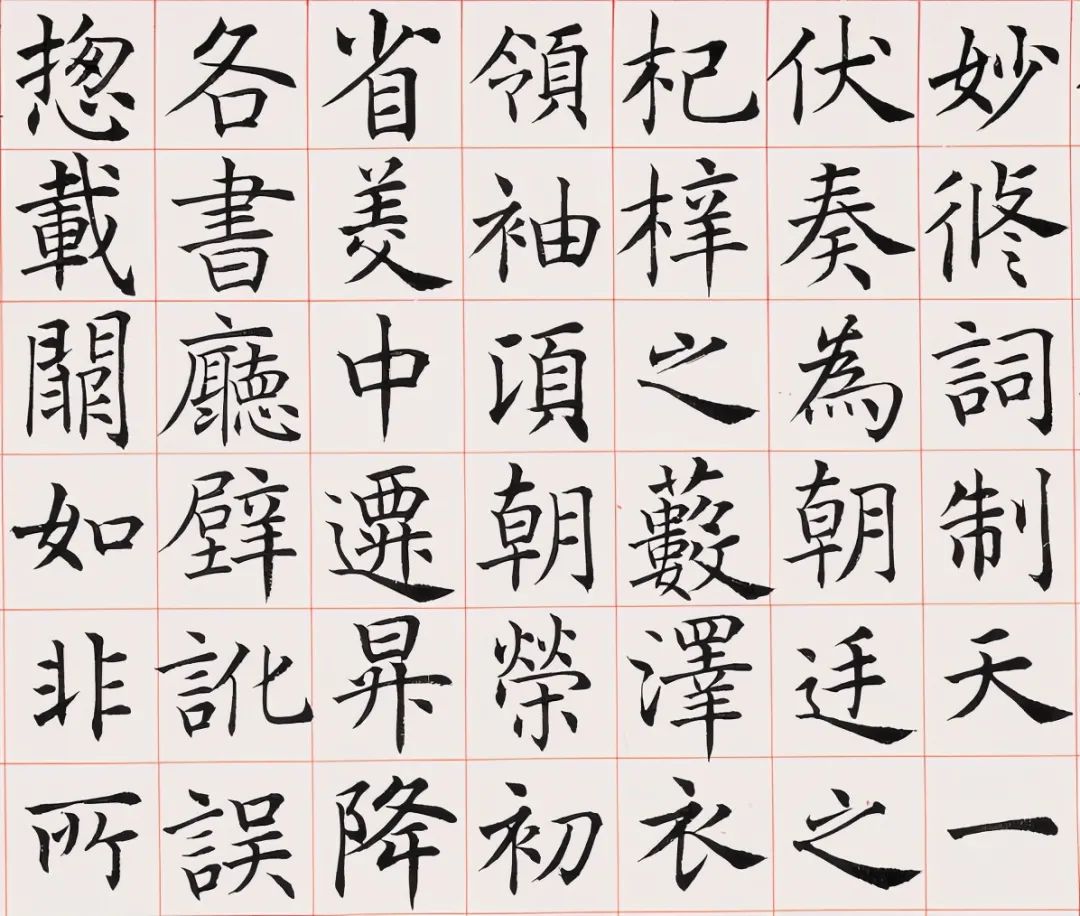 妙修詞制天一
伏奏為朝廷之
杞梓之藪澤衣
領袖湏朝榮初
省美中遷昇降
各書廳壁訛誤
揔載關如非所